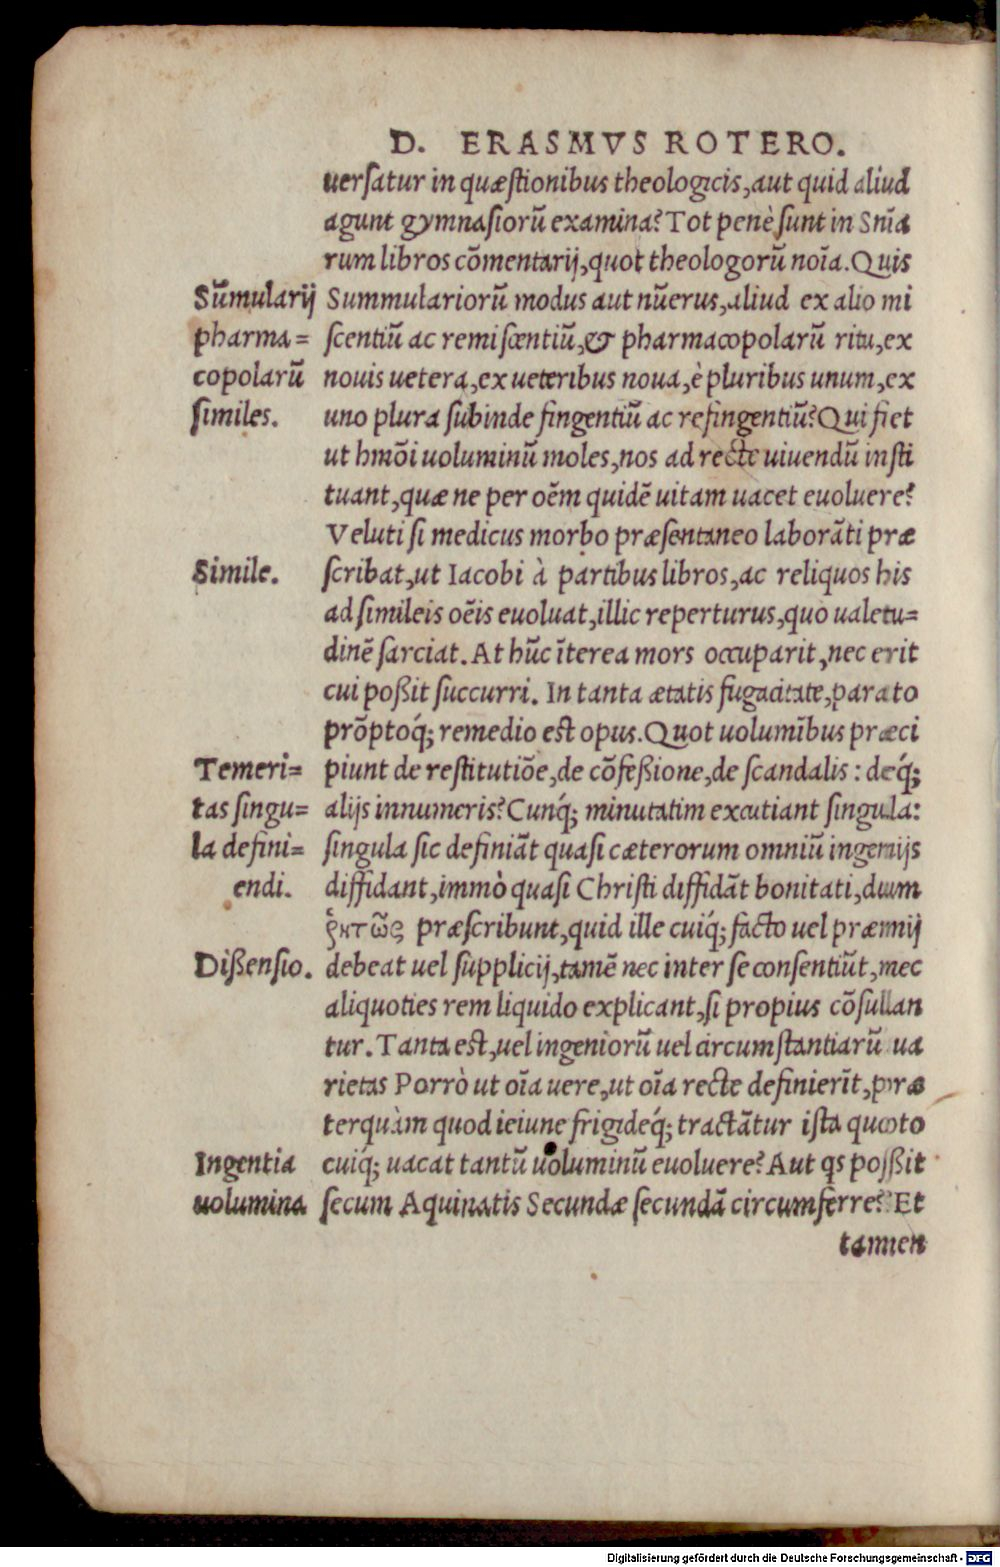 D. ERASMVS ROTERO.
uersatur in quæstionibus theologicis,aut quid aliud
agunt gymnasiorũ examina?Tot penè sunt in Snĩa
rum libros cõmentarij,quot theologorũ noĩa.Quis
Sũmularij
pharma=
copolarũ
similes.
Summulariorũ modus aut nũerus,aliud ex alio mi
scentiũ ac remiscentiũ,& pharmacopolarũ ritu,ex
nouis uetera,ex ueteribus noua,è pluribus unum,ex
uno plura subinde fingentiũ ac refingentiũ?Qui fiet
ut hmõi uoluminũ moles,nos ad recte uiuendũ insti
tuant,quæ ne per oẽm quidẽ uitam uacet euoluere?
Veluti si medicus morbo præsentaneo laborãti præ
Simile.
scribat,ut Iacobi à partibus libros,ac reliquos his
ad simileis oẽis euoluat,illic reperturus,quo ualetu=
dinẽ sarciat.At hũc ĩterea mors occuparit,nec erit
cui poßit succurri. In tanta ætatis fugacitate,parato
prõptoq́; remedio est opus.Quot uolumĩbus præci
Temeri=
tas singu=
la defini=
endi.
piunt de restitutiõe,de cõfeßione,de scandalis : deq́;
alijs innumeris?Cunq́; minutatim excutiant singula:
singula sic definiãt quasi cæterorum omniũ ingenijs
diffidant,immò quasi Christi diffidãt bonitati,dum
ῥητῶς præscribunt,quid ille cuiq́; facto uel præmij
Dißensio.
debeat uel supplicij,tamẽ nec inter se consentiũt,nec
aliquoties rem liquido explicant,si propius cõsullan
tur.Tanta est,uel ingeniorũ uel circumstantiarũ ua
rietas Porrò ut oĩa uere,ut oĩa recte definierĩt,præ
terquàm quod ieiune frigideq́; tractãtur ista quoto
Ingentia
uolumina
cuiq́; uacat tantũ uoluminũ euoluere?Aut qs poßit
secum Aquinatis Secundæ secundã circumferre? Et
tamen
Digitalisierung gefördert durch die Deutsche Forschungsgemeinschaft - DFG